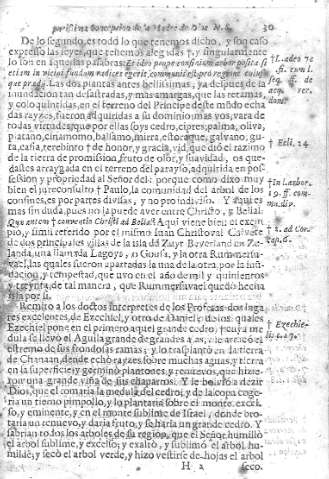 purissima Concepcion de la Madre de Dios N. S. 30
De lo segundo, es todo lo que tenemos dicho, y son caso
expresso las leyes, que tenemos alegadas †, y singularmente
lo son en aquellas palabras:
et iam in vicini fundum radices egerit,
Las dos plantas antes bellissimas, y despues de la
inundacion tan desastradas, y mas amargas, que las retamas,
y coloquintidas, en el terreno del Principe deste modo echa
das rayzes, fueron adquiridas a su dominio: mas vos, vara de
todas virtudes, que por ellas soys cedro, cipres, palma, oliva,
platano, cinamomo, balsamo, mirra, estoraque, galvano, gu
ta, casia, terebinto † de honor, y gracia, vid, que diò el razimo
de la tierra de promision, fruto de olor, y suavidad, os que-
dastes arraygada en el terreno del parayso, adquirida en pos-
session y propriedad al Señor del: porque como dixo muy
bien el jurisconsulto † Paulo, la comunidad del arbol de los
confines, es por partes divisas, y no pro indiviso. Y aqui es
mas sin duda, pues no la puede aver entre Christo, y Belial:
Quæ autem † conventio Christi ad Belial? Aqui viene bien el exem
plo, y simil referido por el mismo Iuan Christoval Calvete
de dos principales villas de la isla de Zuyt Beverland en Ze-
landa, una llamada Lagoys, o Gousa, y la otra Rummersu-
vael, las quales fueron apartadas la una de la otra, por la inũ-
dacion, y tempestad, que uvo en el año de mil y quinientos
y treynta, de tal manera, que Rummersuvael quedò hecha
isla por si.
Remito a los doctos interpretes de los Profetas dos luga
res excelentes, de Ezechiel, y otro de Daniel
Ezechiel pone en el primero aquel grande cedro, † cuya me
dula se llevò el Aguila grande de grandes alas, y le arrancò el
estremo de sus frondosas ramas, y lo trasplantò en la tierra
de Chanaan, donde echò rayzes sobre muchas aguas, y tierra
en la superficie: y germinò plantones, y renuevos, que hizie-
ron una grande viña de sus chaparros. Y le bolviò a dezir
Dios, que el tomaria la medula del cedro, y de la copa coge-
ria un tierno pimpollo, y lo plantaria sobre el monte excel-
so, y eminente, y en el monte sublime de Israel, donde bro-
taria un renuevo, y daria fruto, y se haria un grande cedro. Y
sabrian todos los arboles de su region, que el Señor humillò
el arbol sublime, y excelso; y exaltò, y sublimò el arbol hu-
milde, y secò el arbol verde, y hizo vestirse de hojas el arbol
H 2 seco.
† Eccli. 24
† 2. ad Cor.
cap. 6.
† Ezechie-